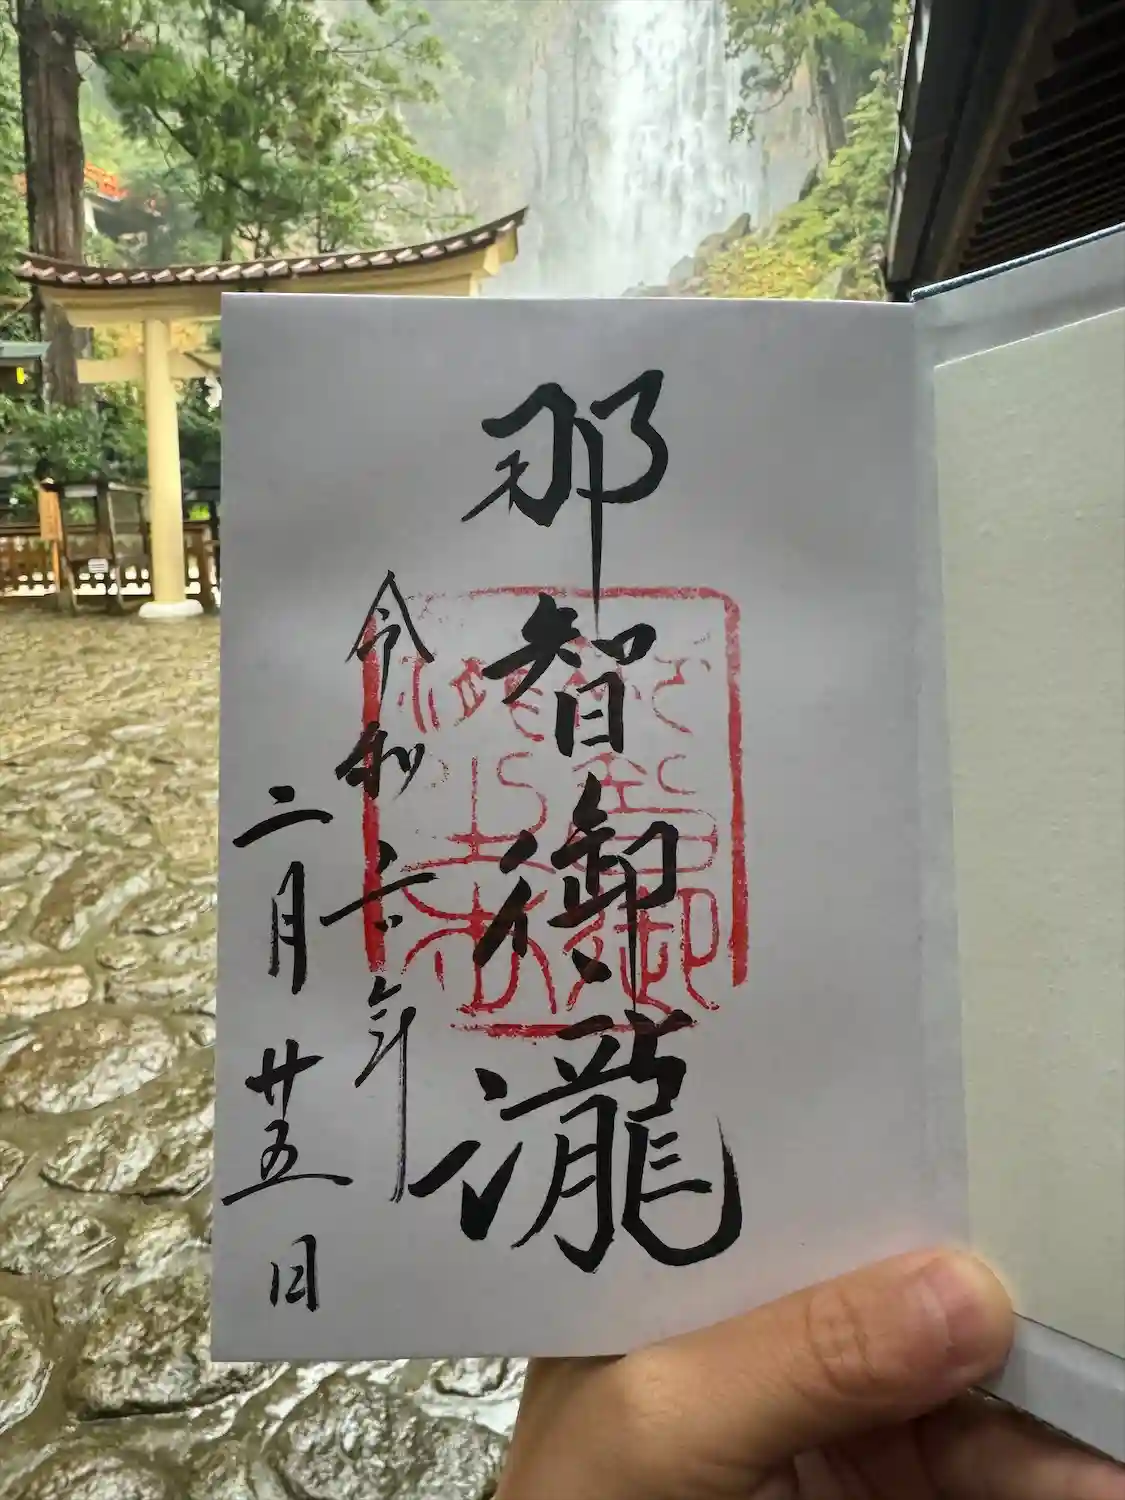 那智御瀧
令和六年
二月廿五日